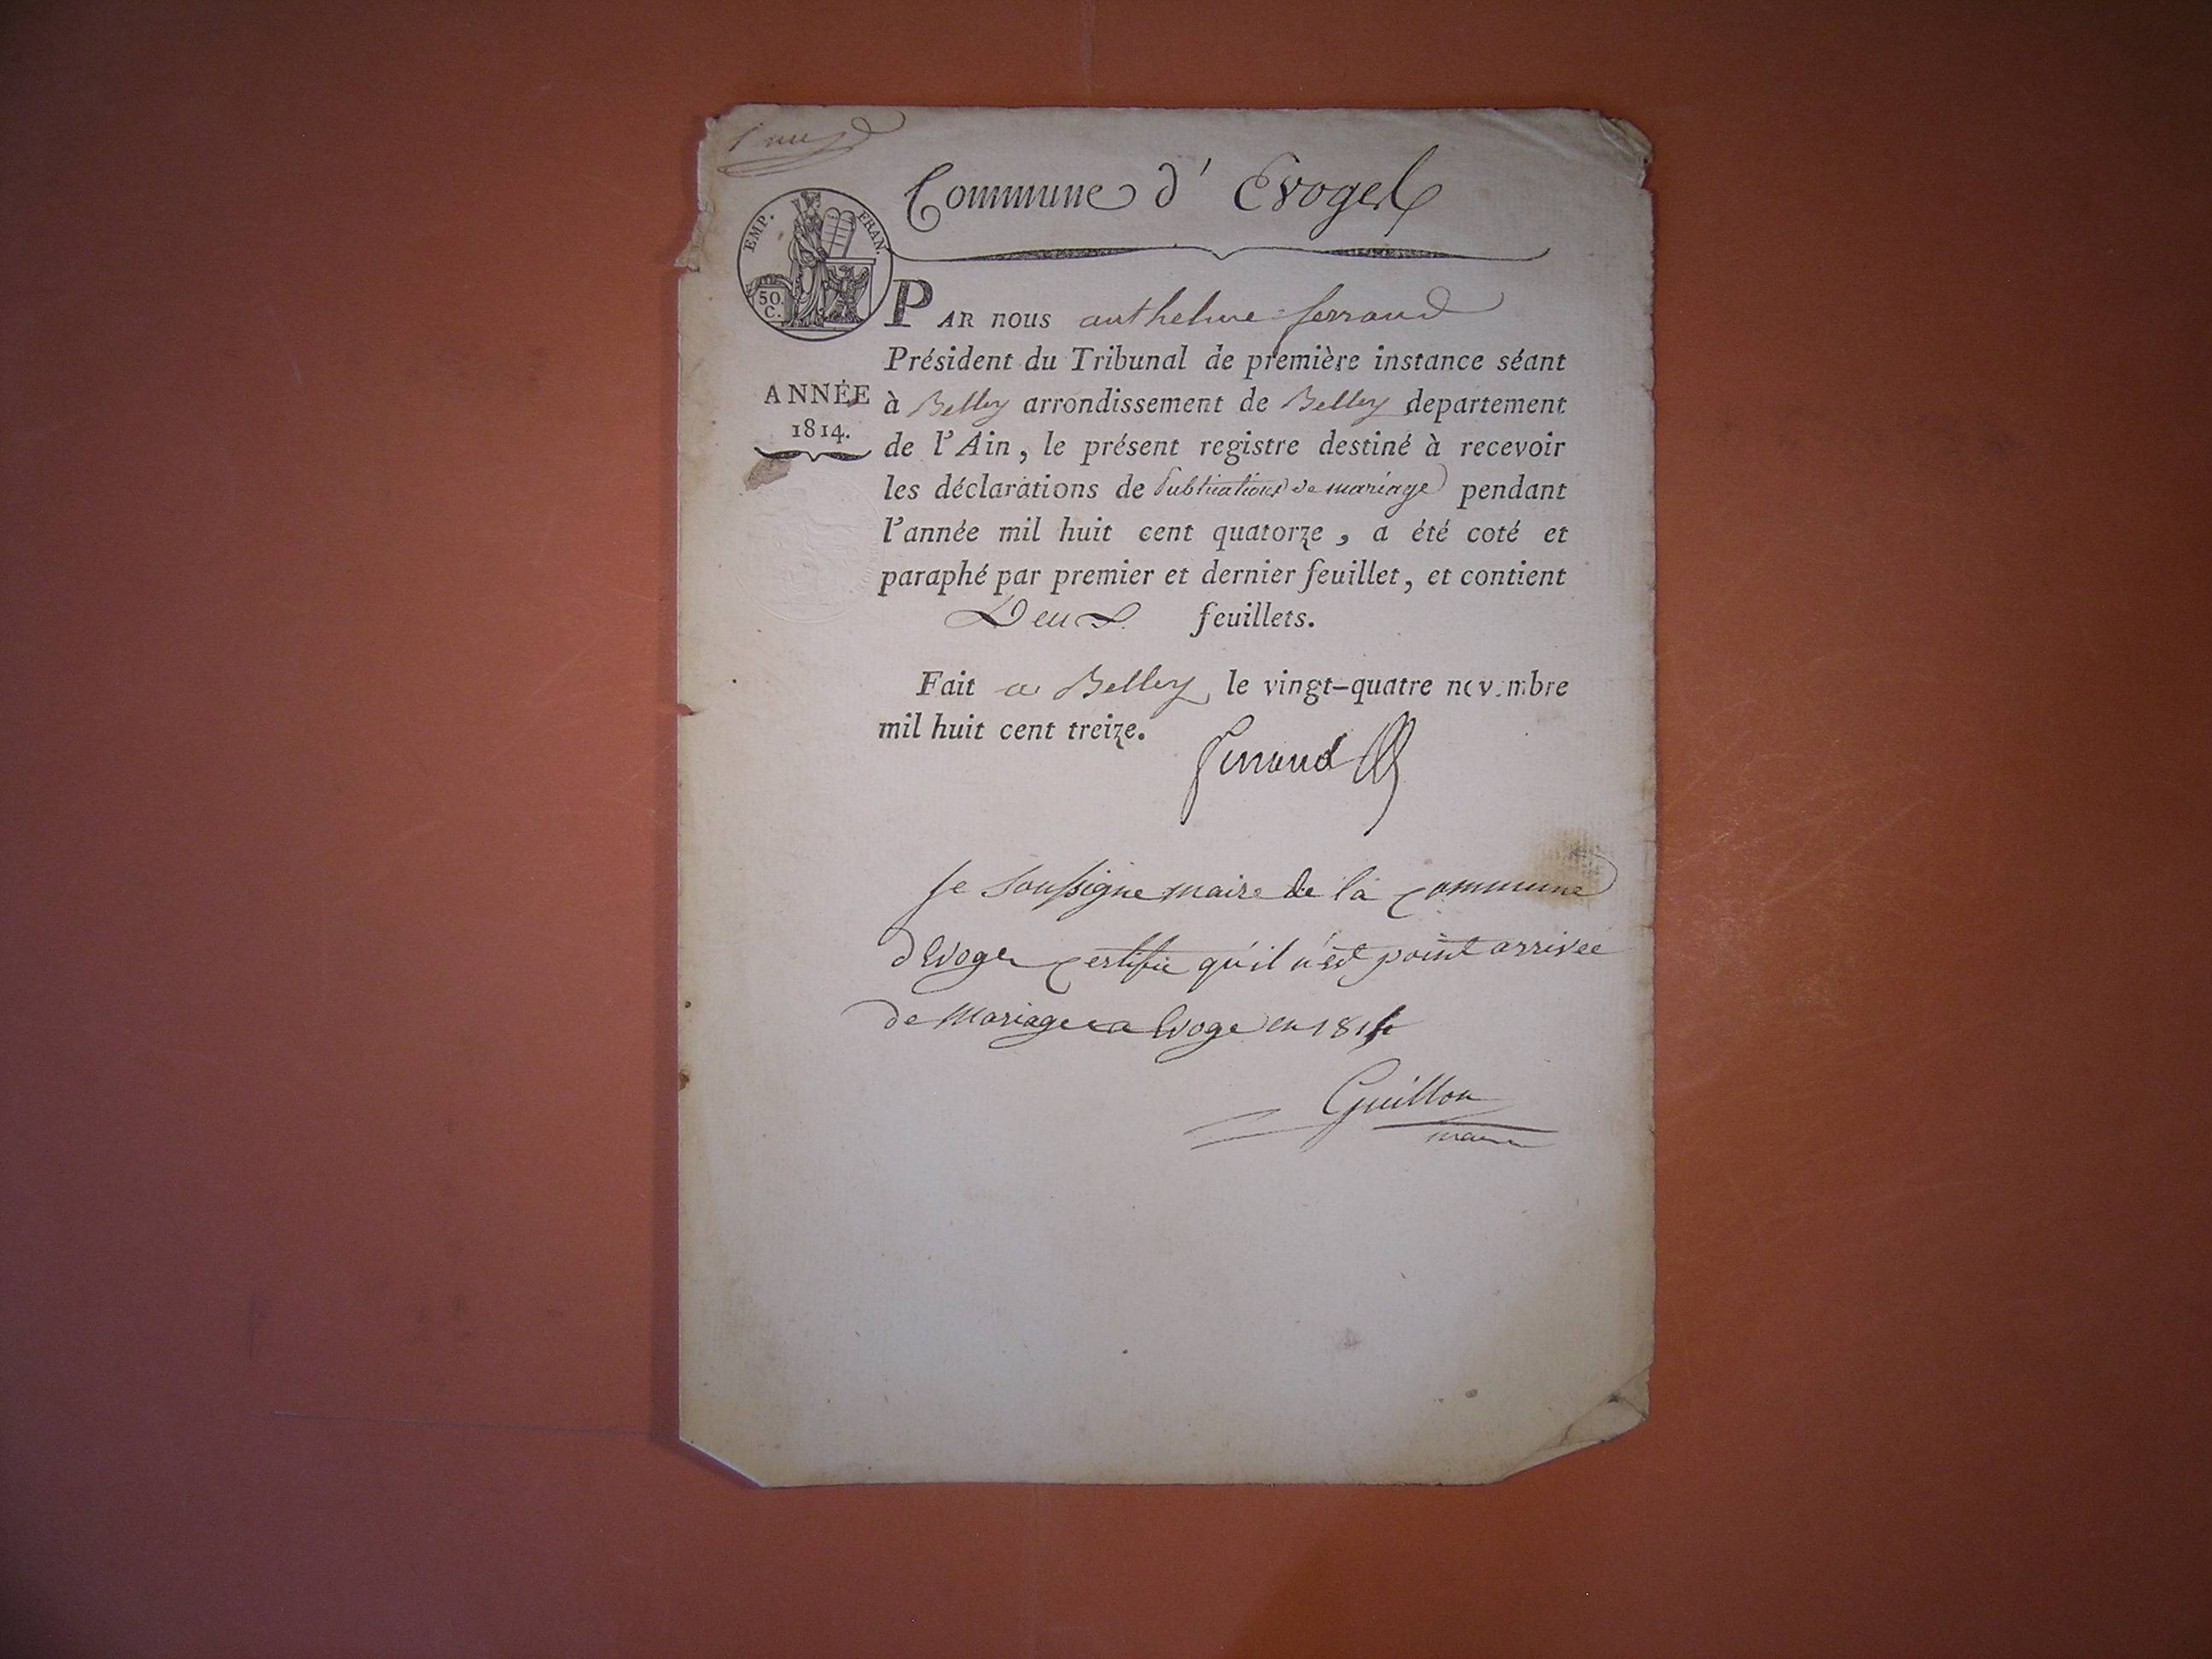 Commune d' Evoges
EMP. FRAN.
50.
C.
PAR nous anthelme ferrand
Président du Tribunal de première instance séant
ANNÉE
1814.
à Belley arrondissement de Belley departement
de l'Ain, le présent registre destiné à recevoir
les déclarations de Publications de mariage pendant
l'année mil huit cent quatorze, a été coté et
paraphé par premier et dernier feuillet, et contient
Deux feuillets.
Fait a Belley, le vingt-quatre novembre
mil huit cent treize.
Ferrand
Je soussigne maire de la commune
d'Evoge certifie qu'il n'est point arrivee
de Mariage a Evoge en 1814
Guillon
maire